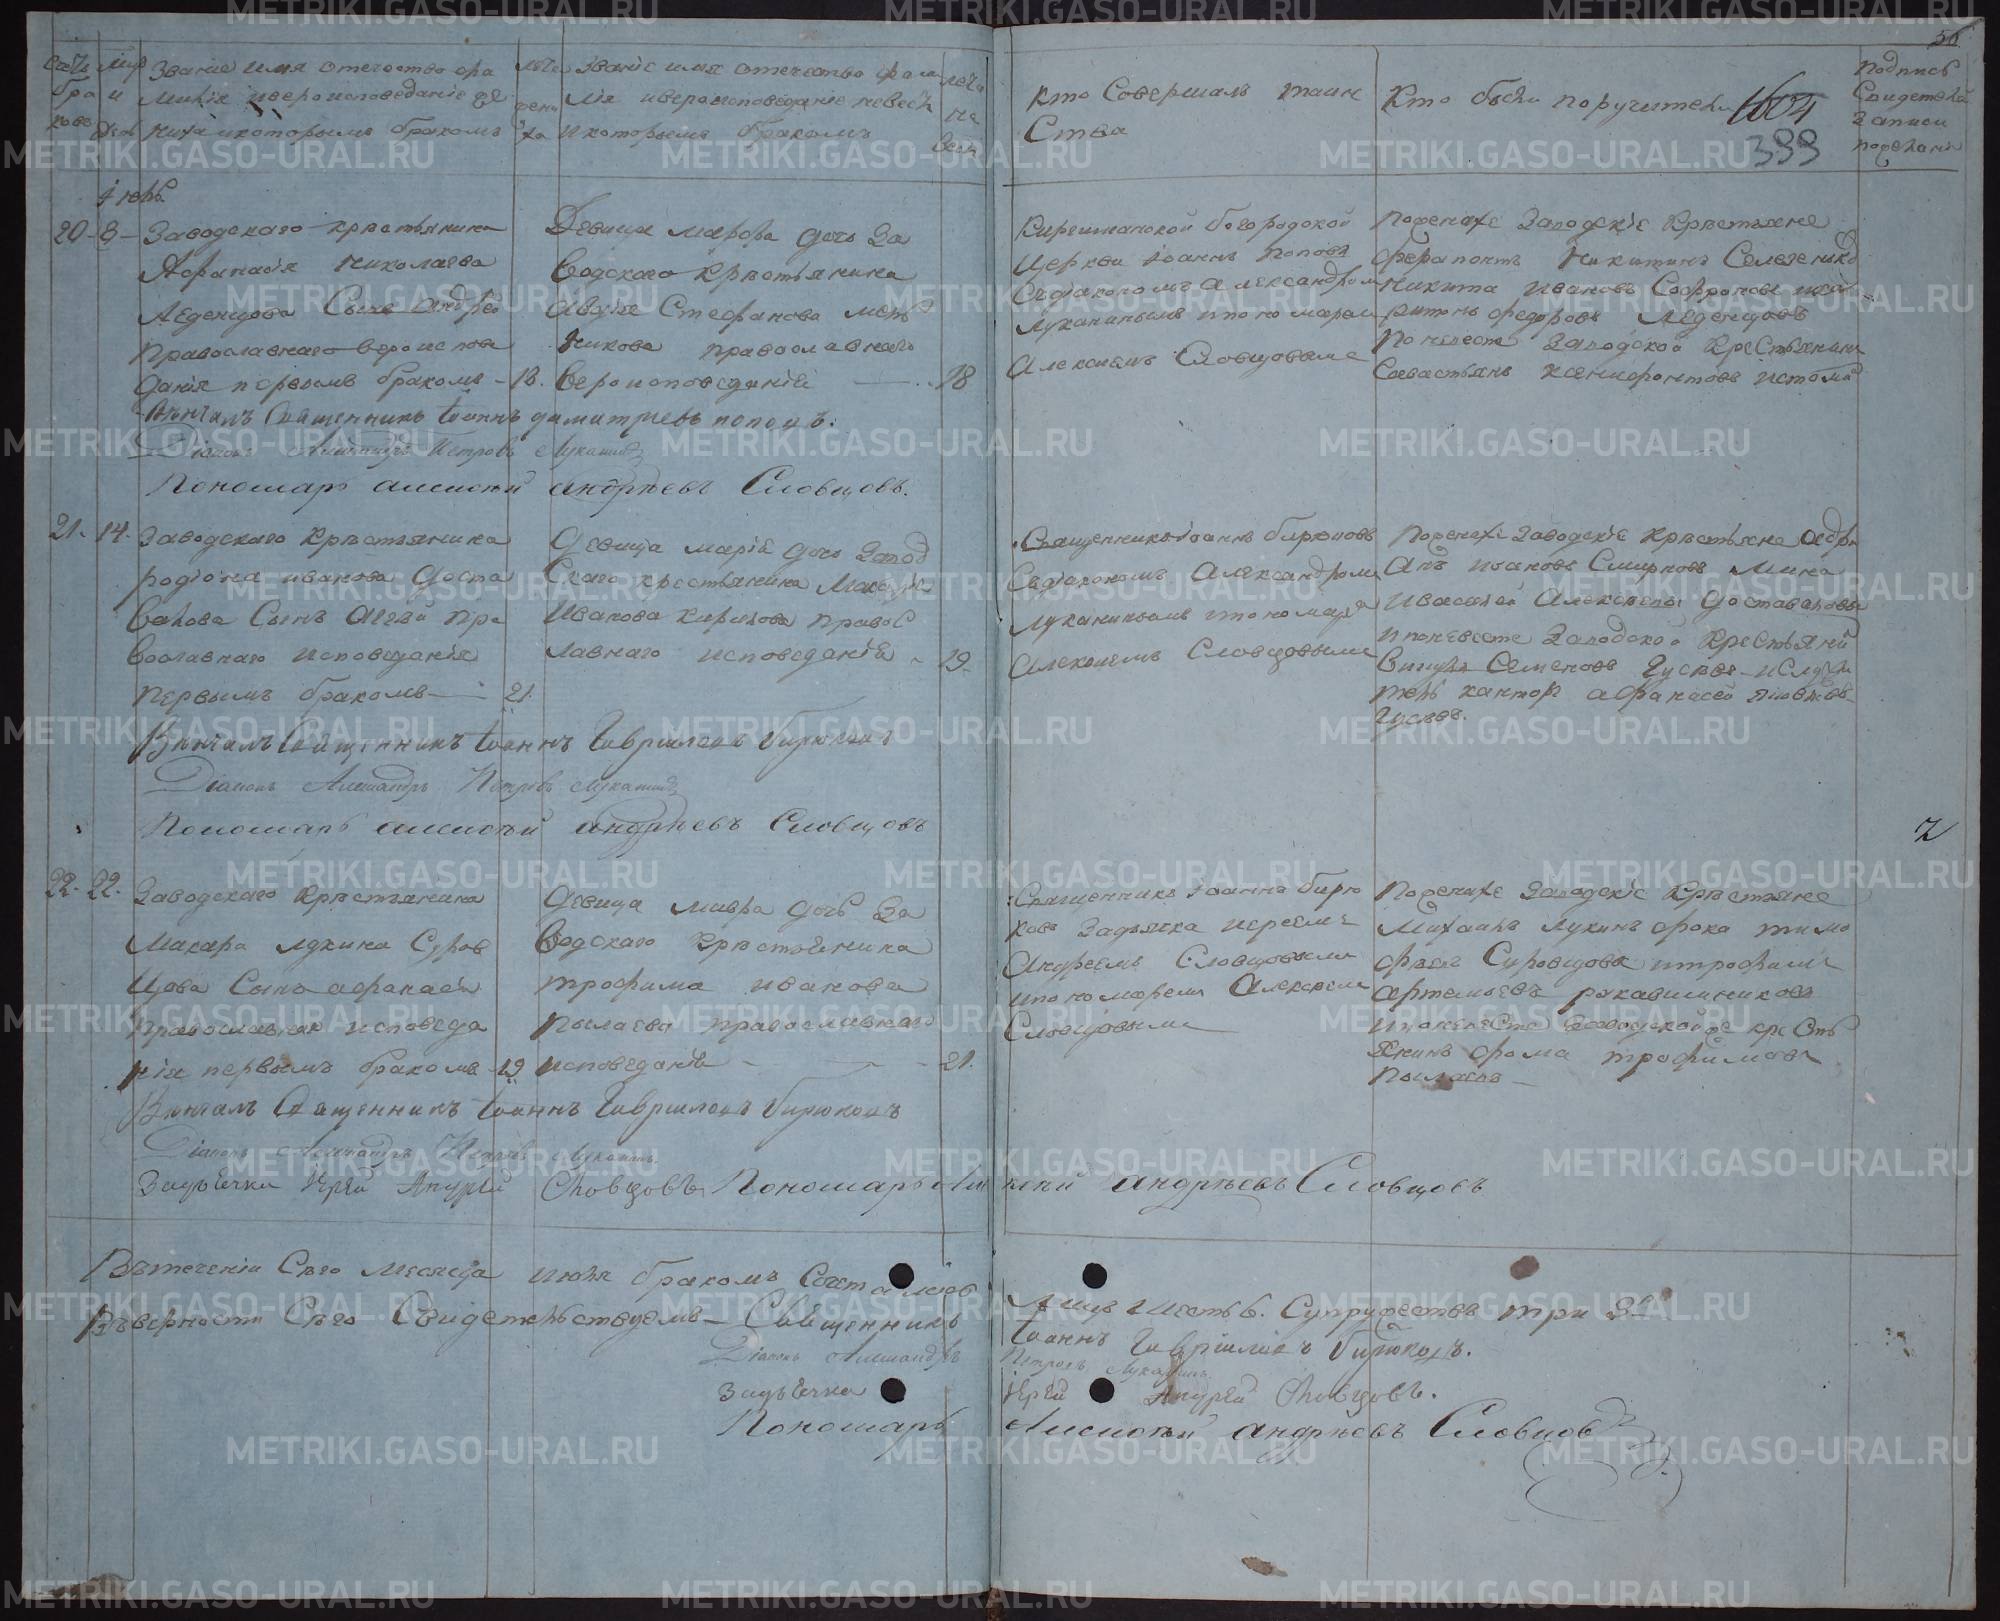 36
Счетъ бра ковъ
Мцъ и день
Званіе имя отечество фа
милія ивероисповеданіе же
ниха икоторымъ бракомъ
лета жени ха
Званіе имя отечество фами
лія ивероисповеданіе невесты
икоторымъ бракомъ
лета не весты
Кто Совершалъ таин
Ства
Кто были поручители
1604
399
подпись
Свидетелей
записи
пожеланію
Іюль
20-8- Заводскаго крестьянина
Афанасія Николаева
Леденцова Сынъ Андрей
православнаго вероиспове
данія первымъ бракомъ - 18.
Девица Марфа дочь За
водскаго крестьянина
Авдія Стефанова мель
никова православнаго
вероисповеданія 18
Церкви Іоаннъ Поповъ
Сдіакономъ Александромъ
Луканинымъ ипономаремъ
Алексеемъ Словцовымъ
Поженихе Заводскіе Крестьяне
Ферапонтъ Никитинъ
Никита Ивановъ
Федоровъ Леденцовъ
Поневесте Заводской Крестьянинъ
Севастьянъ Ксенофонтовъ
Венчалъ Священникъ Іоаннъ Димитріевъ Поповъ.
Діаконъ Александръ Петровъ Луканинъ
Пономарь Алексѣй Андрѣевъ Словцовъ.
21. 14. Заводскаго Крестьянина
родіона иванова Доста
валова Сынъ Агей пра
вославнаго исповеданія
первымъ бракомъ 21.
Девица марія дочь Завод
Скаго крестьянина
Иванова Кирилова правос
лавнаго исповеданія 19.
Священникъ Іоаннъ бирюковъ
Сдіакономъ Александромъ
Луканинымъ ипономаремъ
Алексеемъ Словцовымъ
Поженихе Заводскіе Крестьяне
Ивановъ Смирновъ Мина
Алексеевы Доставаловы
ипоневесте Заводской Крестьянинъ
Семеновъ Гусевъ
афанасей
Гусевъ.
Вѣнчалъ Священникъ Іоаннъ Гавриловъ Бирюковъ
Діаконъ Александръ Петровъ Луканинъ
Пономарь Алексѣй Андрѣевъ Словцовъ
2
22. 22. Заводскаго Крестьянина
Макара лукина Суров
цова Сынъ афанасій
православнаг исповеда
нія первымъ бракомъ 19
Девица мавра дочь За
водскаго крестьянина
трофима иванова
Пылаева православнаго
исповеданія 21.
Священникъ Іоаннъ бирю
ковъ Задьячка иереемъ
Андреемъ Словцовымъ
ипономаремъ Алексеемъ
Словцовымъ
Поженихе Заводскіе Крестьяне
Михаилъ лукинъ фока тимо
феев Суровцовы итрофимъ
артемьевъ рукавишниковъ
ипоневесте Заводской же кресть
янинъ фома трофимовъ
Пылаевъ
Вѣнчалъ Священникъ Іоаннъ Гавриловъ Бирюковъ
Діаконъ Александръ Петровъ Луканинъ.
Задьячка Іерей Андрей Словцовъ Пономарь Алексѣй Андрѣевъ Словцовъ
Втечении Сего месяца июля бракомъ Сочеталось Лицъ шесть 6. Супружествъ три 3.
Вверности Сего Свидетельствуемъ Священникъ Іоаннъ Гавриловъ Бирюковъ.
Діаконъ Александръ Петровъ Луканинъ.
Задьячка Іерей Андрей Словцовъ.
Пономарь Алексѣй Андрѣевъ Словцовъ
METRIKI.GASO-URAL.RU